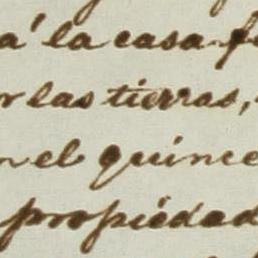 á la casa
las tierras,
el quince
propiedad